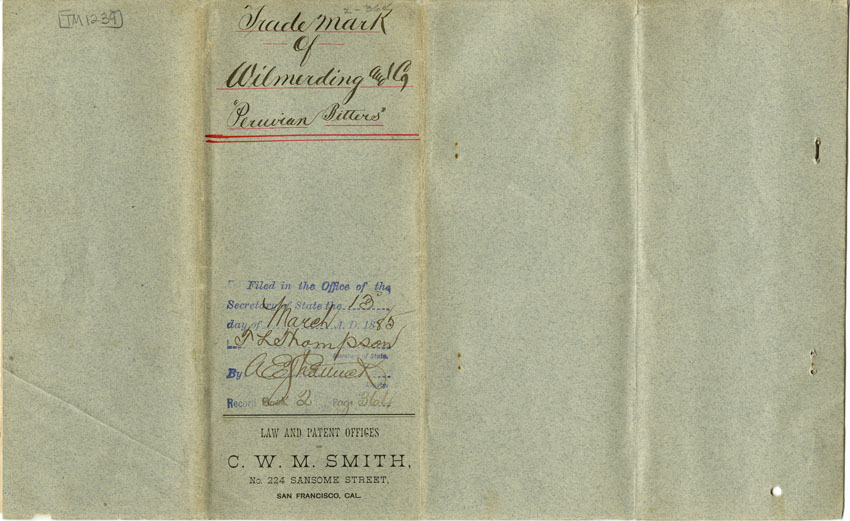 TM1239
2-364
Trade Mark
Of
Wilmerding and Co
"Peruvian Bitters"
Filed in the Office of the
Secretary of State the 13
day of March A. D. 1885
T L Thompson
Secretary of State.
By A E Shattuck
Deputy
Record Book 2 Page 364
LAW AND PATENT OFFICES
C. W. M. SMITH,
No. 224 SANSOME STREET,
SAN FRANCISCO, CAL.